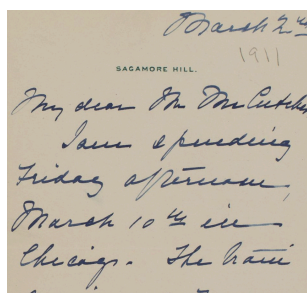 March 2nd
1911
SAGAMORE HILL.
My dear Mr McCutcheon
I am spending
Friday afternoon,
March 10th in
Chicago. The train